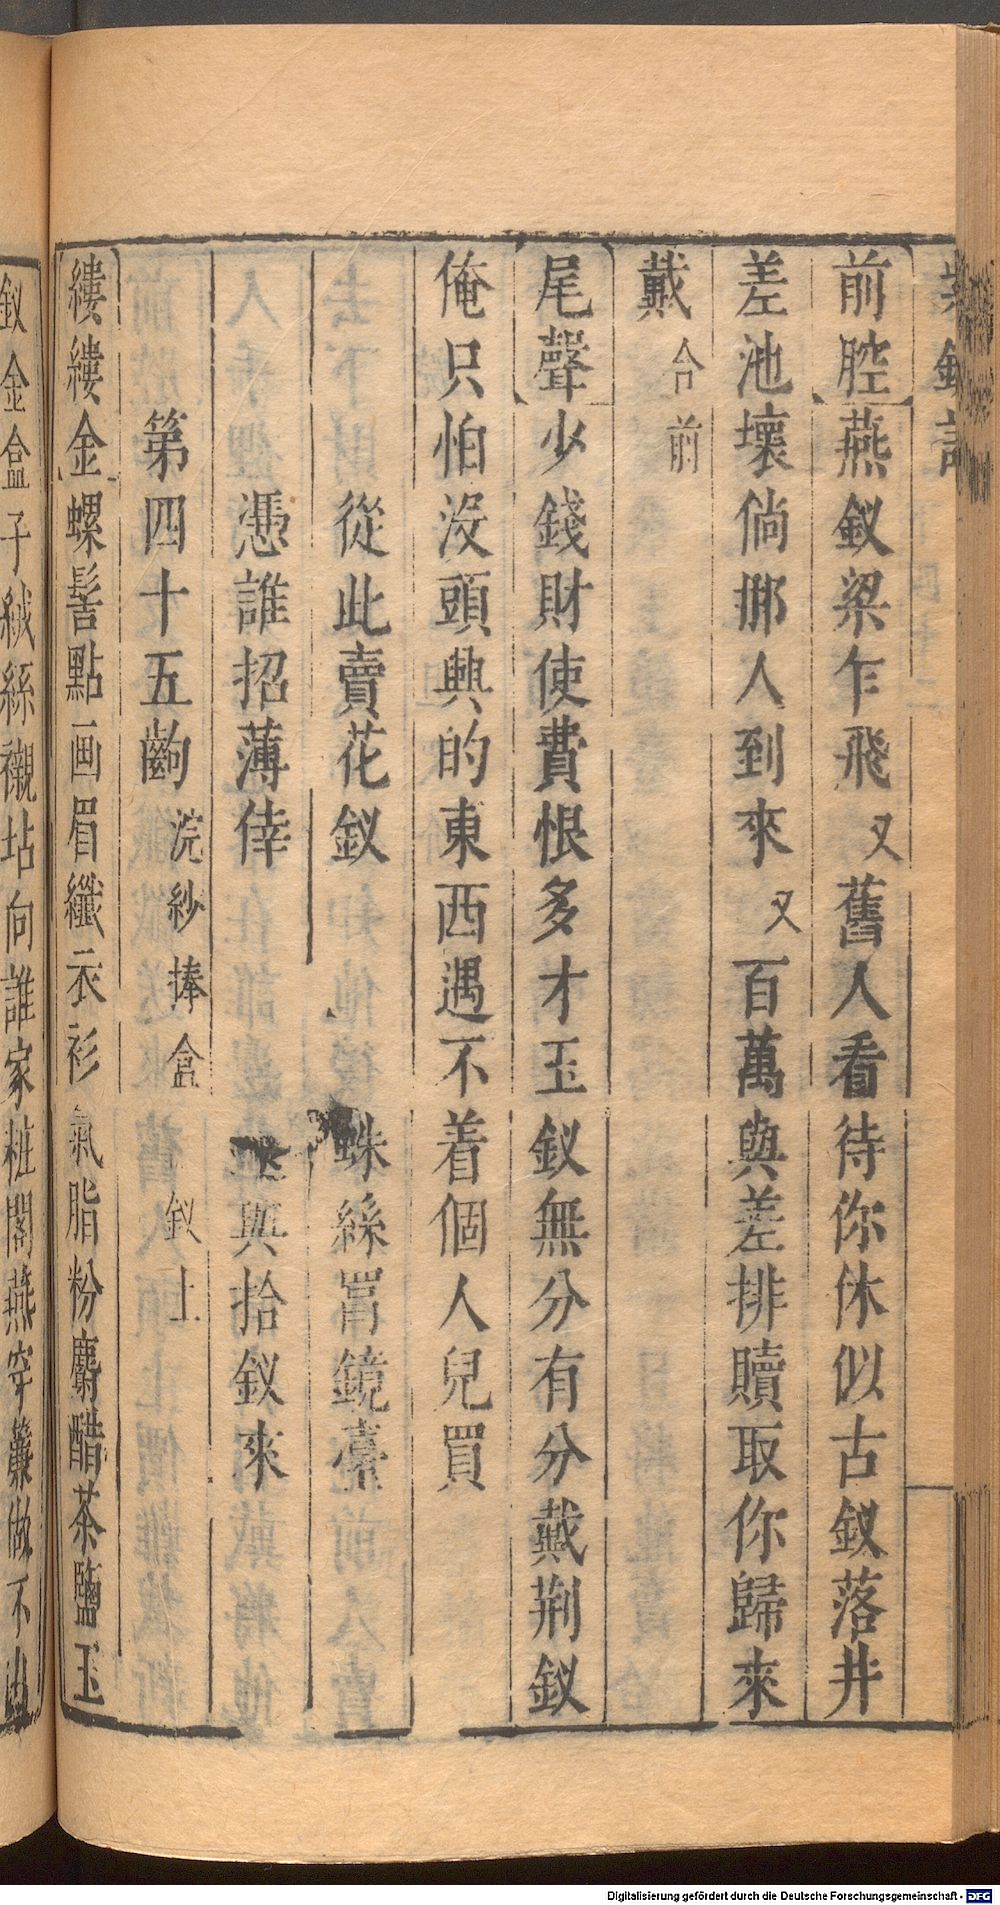 紫釵記
前腔燕釵梁乍飛又舊人看待你休似古釵落井
差池壞倘那人到來又百萬與差排贖取你歸來
戴合前
尾聲少錢財使費恨多才玉釵無分有分戴荆釵
俺只怕沒頭興的東西遇不着個人兒買
從此賣花釵 蛛絲罥鏡臺
憑誰招薄倖 與拾釵來
第四十五齣 浣紗捧盒釵上
縷縷金螺髻點画眉纖衣衫氣脂粉麝醋茶鹽玉
釵金盒子絨絲襯坫向誰家粧閣燕穿簾做不
Digitalisierung gefördert durch die Deutsche Forschungsgemeinschaft - DFG